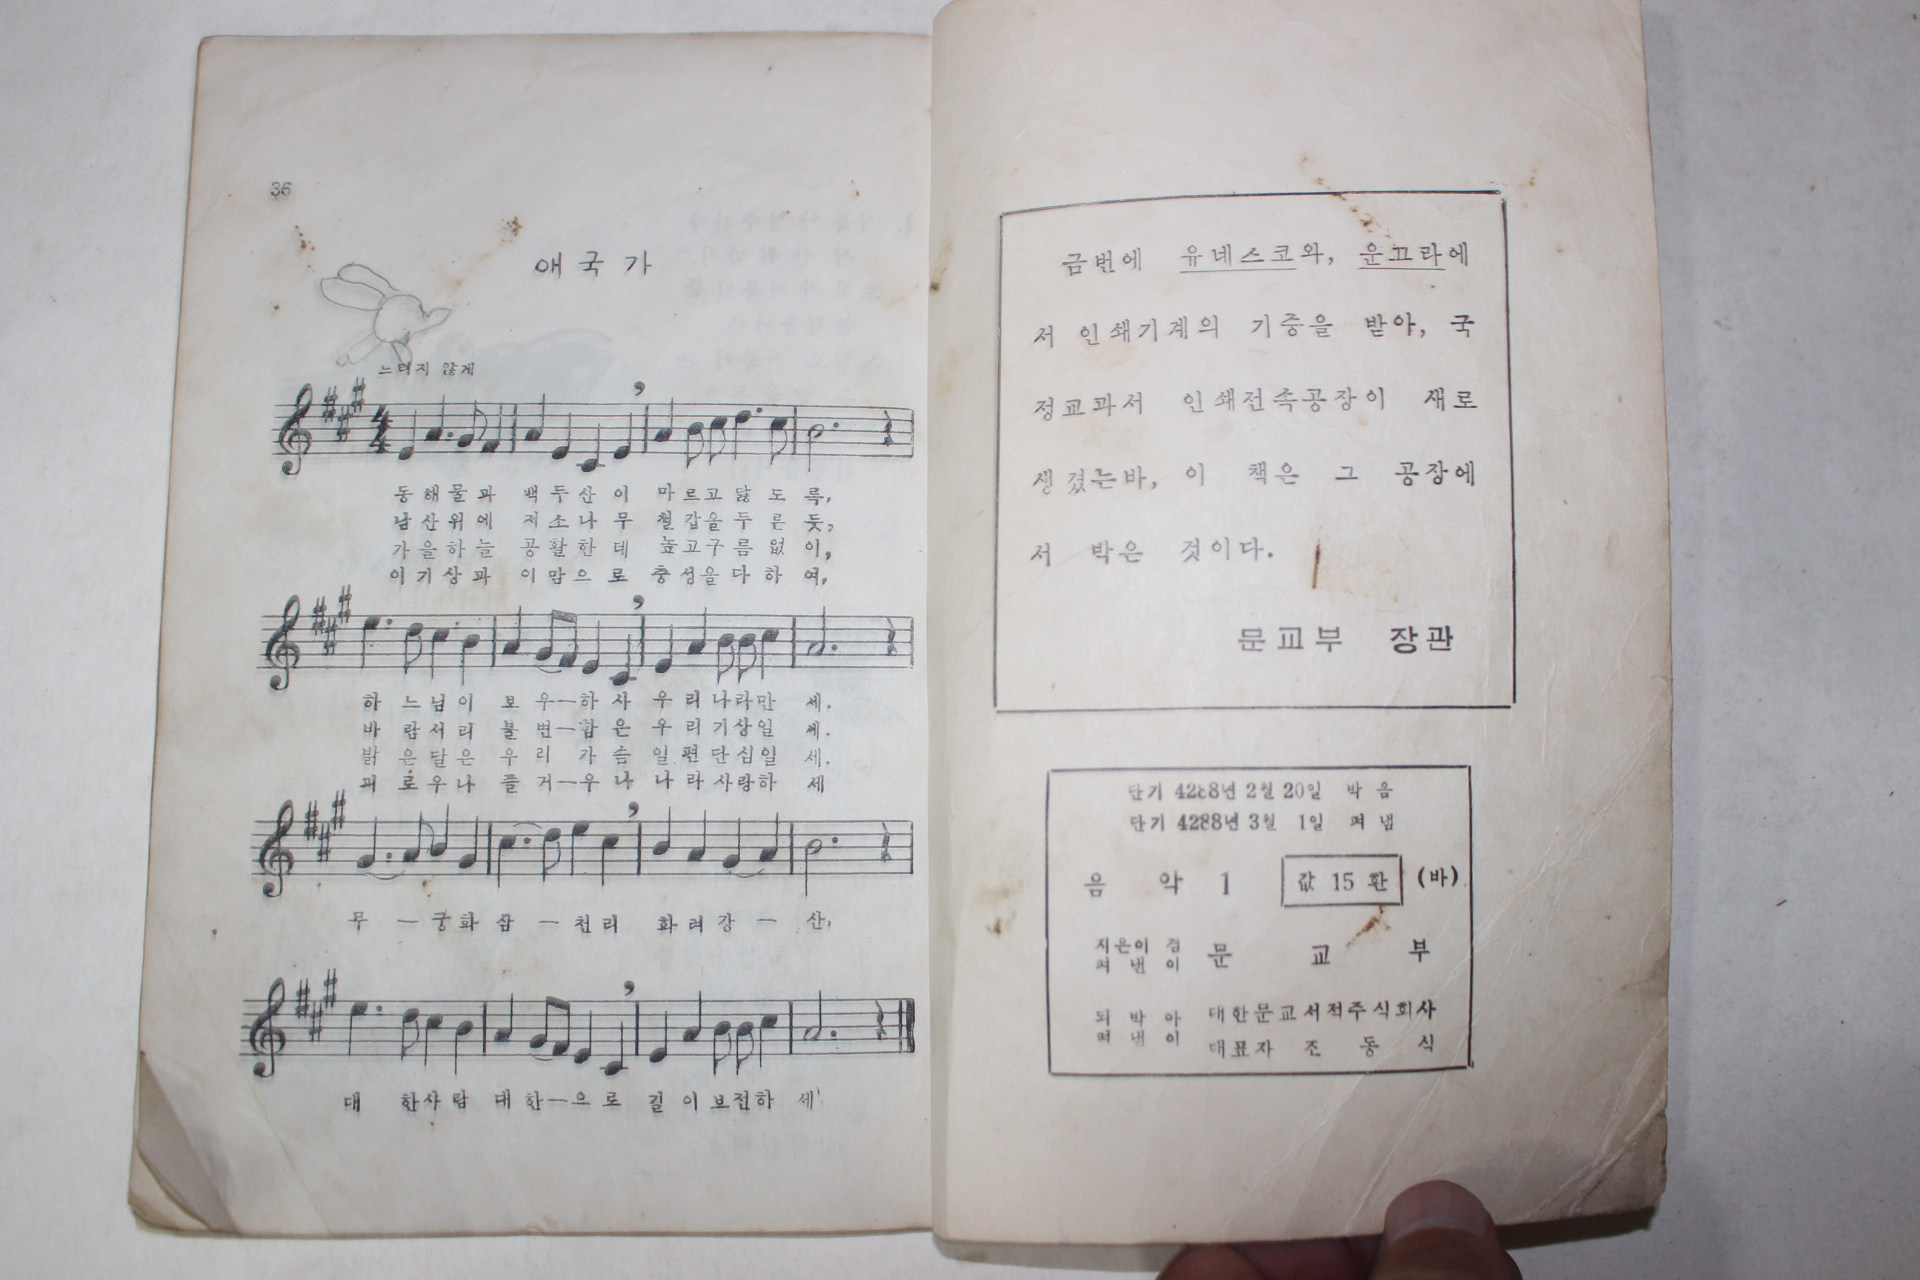 36
애국가
느리지 않게
동해물과 백두산이 마르고 닳도록,
남산위에 저소나무 철갑을두른듯,
가을하늘 공활한데 높고구름없이,
이기상과 이맘으로 충성을다하여,
하느님이 보우—하사 우리나라만세.
바람서리 불변—함은 우리기상일세.
밝은달은 우리 가슴 일편단심일세.
괴로우나 즐거—우나 나라사랑하세
무—궁화삼—천리 화려강—산,
대 한사람 대한—으로 길이보전하세
금번에 유네스코와, 운끄라에
서 인쇄기계의 기증을 받아, 국
정교과서 인쇄전속공장이 새로
생겼는바, 이 책은 그 공장에
서 박은 것이다.
문교부 장관
단기 4288년 2월 20일 박음
단기 4288년 3월 1일 펴냄
음악 1 값 15 환 (바)
지은이 겸
펴낸이 문교부
되박아
펴낸이
대한문교서적주식회사
대표자 조동식